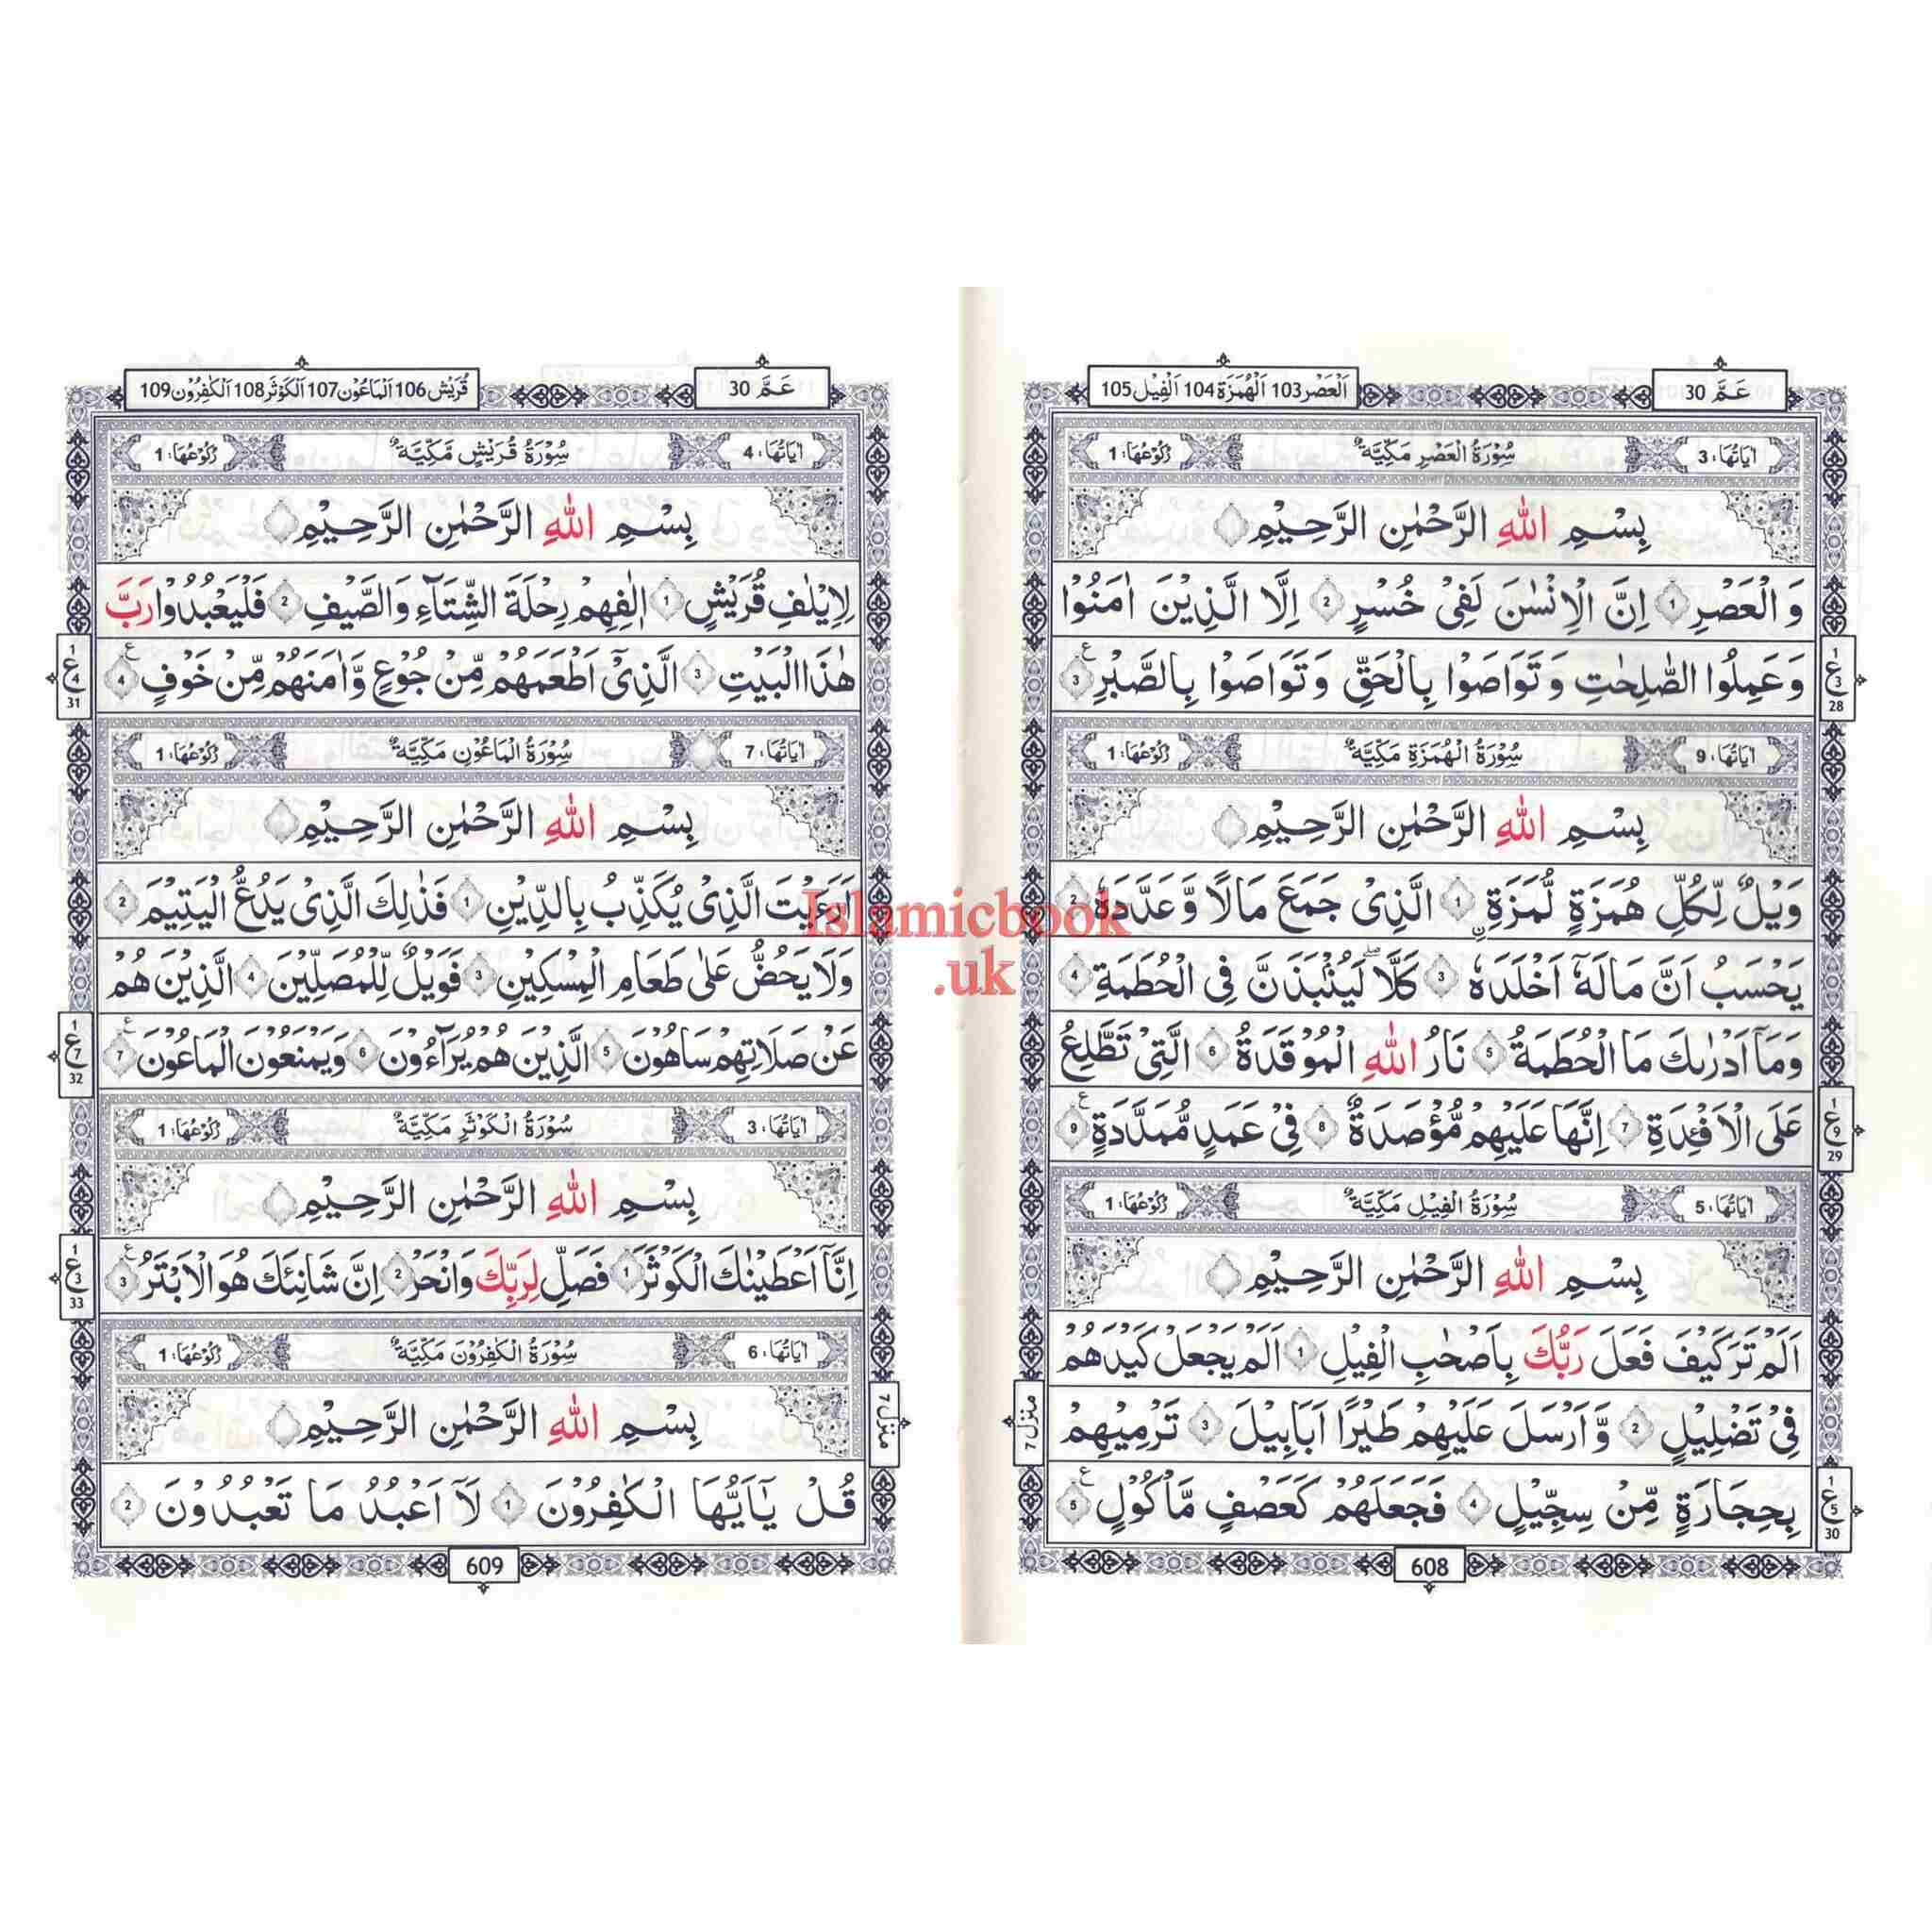 عَمَّ 30
اَلْعَصْر 103 اَلْهُمَزَة 104 اَلْفِيْل 105
اٰيَاتُهَا: 3 سُوْرَةُ الْعَصْرِ مَكِّيَّةٌ رُكُوْعُهَا: 1
بِسْمِ اللّٰهِ الرَّحْمٰنِ الرَّحِيْمِ
وَ الْعَصْرِ 1 اِنَّ الْاِنْسٰنَ لَفِيْ خُسْرٍ 2 اِلَّا الَّذِيْنَ اٰمَنُوْا
وَ عَمِلُوا الصّٰلِحٰتِ وَ تَوَاصَوْا بِالْحَقِّ وَ تَوَاصَوْا بِالصَّبْرِ 3
1 ع 3 28
اٰيَاتُهَا: 9 سُوْرَةُ الْهُمَزَةِ مَكِّيَّةٌ رُكُوْعُهَا: 1
بِسْمِ اللّٰهِ الرَّحْمٰنِ الرَّحِيْمِ
وَيْلٌ لِّكُلِّ هُمَزَةٍ لُّمَزَةِ 1 الَّذِيْ جَمَعَ مَالًا وَّ عَدَّدَهٗ 2
يَحْسَبُ اَنَّ مَالَهٗٓ اَخْلَدَهٗ 3 كَلَّا لَيُنْۢبَذَنَّ فِي الْحُطَمَةِ 4
وَمَآ اَدْرٰىكَ مَا الْحُطَمَةُ 5 نَارُ اللّٰهِ الْمُوْقَدَةُ 6 الَّتِيْ تَطَّلِعُ
عَلَى الْاَفْـِٕدَةِ 7 اِنَّهَا عَلَيْهِمْ مُّؤْصَدَةٌ 8 فِيْ عَمَدٍ مُّمَدَّدَةٍ 9
1 ع 9 29
اٰيَاتُهَا: 5 سُوْرَةُ الْفِيْلِ مَكِّيَّةٌ رُكُوْعُهَا: 1
بِسْمِ اللّٰهِ الرَّحْمٰنِ الرَّحِيْمِ
اَلَمْ تَرَ كَيْفَ فَعَلَ رَبُّكَ بِاَصْحٰبِ الْفِيْلِ 1 اَلَمْ يَجْعَلْ كَيْدَهُمْ
فِيْ تَضْلِيْلٍ 2 وَّ اَرْسَلَ عَلَيْهِمْ طَيْرًا اَبَابِيْلَ 3 تَرْمِيْهِمْ
منزل ٧
بِحِجَارَةٍ مِّنْ سِجِّيْلٍ 4 فَجَعَلَهُمْ كَعَصْفٍ مَّاْكُوْلٍ 5
1 ع 5 30
608
عَمَّ 30
قُرَيْش 106 اَلْمَاعُوْن 107 اَلْكَوْثَر 108 اَلْكٰفِرُوْن 109
اٰيَاتُهَا: 4 سُوْرَةُ قُرَيْشٍ مَكِّيَّةٌ رُكُوْعُهَا: 1
بِسْمِ اللّٰهِ الرَّحْمٰنِ الرَّحِيْمِ
لِاِيْلٰفِ قُرَيْشٍ 1 اٖلٰفِهِمْ رِحْلَةَ الشِّتَآءِ وَالصَّيْفِ 2 فَلْيَعْبُدُوْا رَبَّ
هٰذَا الْبَيْتِ 3 الَّذِيْٓ اَطْعَمَهُمْ مِّنْ جُوْعٍ وَّاٰمَنَهُمْ مِّنْ خَوْفٍ 4
1 ع 4 31
اٰيَاتُهَا: 7 سُوْرَةُ الْمَاعُوْنِ مَكِّيَّةٌ رُكُوْعُهَا: 1
بِسْمِ اللّٰهِ الرَّحْمٰنِ الرَّحِيْمِ
اَرَءَيْتَ الَّذِيْ يُكَذِّبُ بِالدِّيْنِ 1 فَذٰلِكَ الَّذِيْ يَدُعُّ الْيَتِيْمَ 2
وَلَا يَحُضُّ عَلٰى طَعَامِ الْمِسْكِيْنِ 3 فَوَيْلٌ لِّلْمُصَلِّيْنَ 4 الَّذِيْنَ هُمْ
عَنْ صَلَاتِهِمْ سَاهُوْنَ 5 الَّذِيْنَ هُمْ يُرَآءُوْنَ 6 وَيَمْنَعُوْنَ الْمَاعُوْنَ 7
1 ع 7 32
اٰيَاتُهَا: 3 سُوْرَةُ الْكَوْثَرِ مَكِّيَّةٌ رُكُوْعُهَا: 1
بِسْمِ اللّٰهِ الرَّحْمٰنِ الرَّحِيْمِ
اِنَّآ اَعْطَيْنٰكَ الْكَوْثَرَ 1 فَصَلِّ لِرَبِّكَ وَانْحَرْ 2 اِنَّ شَانِئَكَ هُوَ الْاَبْتَرُ 3
1 ع 3 33
اٰيَاتُهَا: 6 سُوْرَةُ الْكٰفِرُوْنَ مَكِّيَّةٌ رُكُوْعُهَا: 1
بِسْمِ اللّٰهِ الرَّحْمٰنِ الرَّحِيْمِ
منزل ٧
قُلْ يٰٓاَيُّهَا الْكٰفِرُوْنَ 1 لَآ اَعْبُدُ مَا تَعْبُدُوْنَ 2
609
Islamicbook
.uk